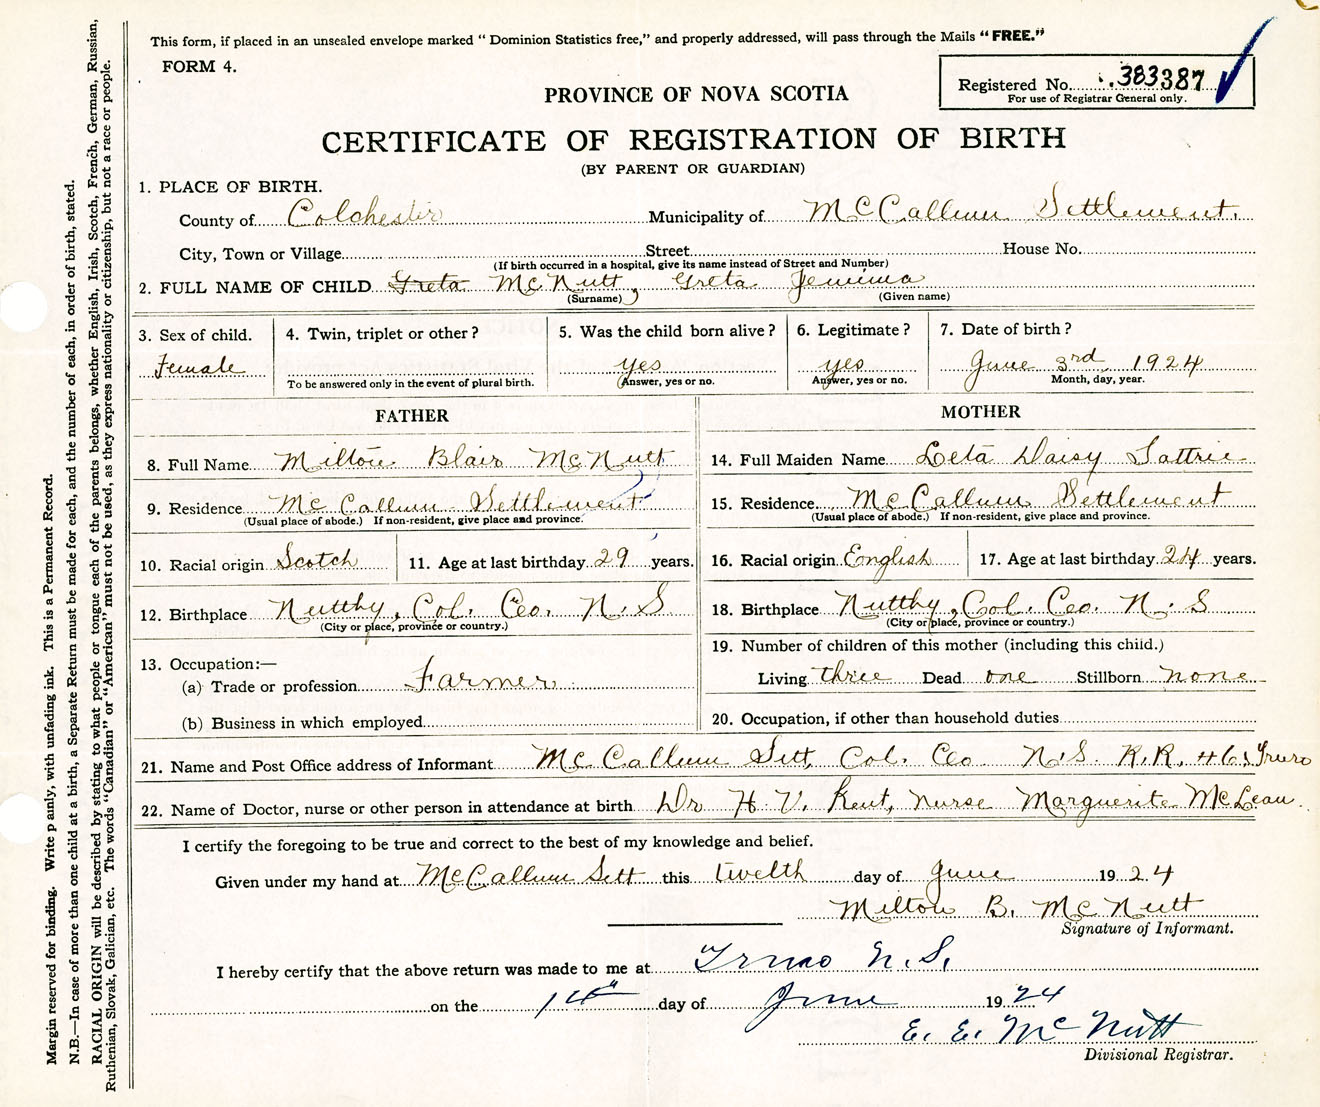 This form, if placed in an unsealed envelope marked "Dominion Statistics free," and properly addressed, will pass through the Mails "FREE."
FORM 4.
Registered No. 383387
For use of Registrar General only.
PROVINCE OF NOVA SCOTIA
CERTIFICATE OF REGISTRATION OF BIRTH
(BY PARENT OR GUARDIAN)
1. PLACE OF BIRTH.
County of Colchester Municipality of McCallum Settlement.
City, Town or Village Street House No.
(If birth occurred in a hospital, give its name instead of Street and Number)
2. FULL NAME OF CHILD Greta McNutt, Greta Jemima
(Surname) (Given name)
3. Sex of child. 4. Twin, triplet or other? 5. Was the child born alive? 6. Legitimate? 7. Date of birth?
Female yes yes June 3rd, 1924
To be answered only in the event of plural birth. (Answer, yes or no. Answer, yes or no. Month, day, year.
FATHER MOTHER
8. Full Name Milton Blair McNutt 14. Full Maiden Name Leta Daisy Tattrie
9. Residence McCallum Settlement 15. Residence McCallum Settlement
(Usual place of abode.) If non-resident, give place and province. (Usual place of abode.) If non-resident, give place and province.
10. Racial origin Scotch 11. Age at last birthday 29 years. 16. Racial origin English 17. Age at last birthday 24 years.
12. Birthplace Nuttby, Col. Co. N. S 18. Birthplace Nuttby, Col. Co. N. S
(City or place, province or country.) (City or place, province or country.)
13. Occupation:— 19. Number of children of this mother (including this child.)
(a) Trade or profession Farmer Living three Dead one Stillborn none
(b) Business in which employed 20. Occupation, if other than household duties
21. Name and Post Office address of Informant McCallum Sett, Col. Co N.S. R.R. #6, Truro
22. Name of Doctor, nurse or other person in attendance at birth Dr H. V. Kent, nurse Marguerite McLean.
I certify the foregoing to be true and correct to the best of my knowledge and belief.
Given under my hand at McCallum Sett this twelth day of June 1924
Milton B. McNutt
Signature of Informant.
I hereby certify that the above return was made to me at Truro N.S.
on the 14th day of June 1924
E. E. McNutt
Divisional Registrar.
Margin reserved for binding. Write p ainly, with unfading ink. This is a Permanent Record.
N.B.—In case of more than one child at a birth, a Separate Return must be made for each, and the number of each, in order of birth, stated.
RACIAL ORIGIN will be described by stating to what people or tongue each of the parents belongs, whether English, Irish, Scotch, French, German, Russian,
Ruthenian, Slovak, Galician, etc. The words "Canadian" or "American" must not be used, as they express nationality or citizenship, but not a race or people.